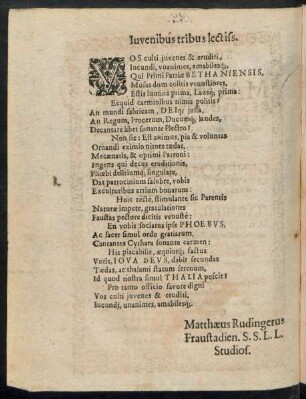 Iuvenibus tribus lectiss.
VOS culti juvenes & eruditi,
Iucundi, unanimes, amabilesq́;,
Qui Primi Patriæ BETHANIENSIS,
Musas dum colitis venustiores,
Estis lumina prima, Lausq́; prima:
Ecquid carminibus nimis potitis?
An mundi fabricam, DEIq; jussa,
An Regum, Procerum, Ducumq́; laudes,
Decantare libet sonante Plectro?
Non sic: Est animus, pia & voluntas
Ornandi eximio nitore tædas,
Mecænatis, & optimi Patroni:
Ingens qui decus eruditionis,
Phœbi delitiumq́; singulare,
Das patrocinium salubre, vobis
Excultoribus artium bonarum:
Huic rectè, stimulante sic Parentis
Naturæ impete, gratulationes
Faustas pectore dicitis venustè:
En vobis sociatus ipse PHOEBVS,
Ac sacer simul ordo gratiarum,
Cantantes Cythara sonante carmen:
His placabilis, æquiorq́; factus
Votis, IOVA DEVS, dabit secundas
Tædas, ac thalami statum serenum,
Id quod nostra simul THALIA poscit:
Pro tanto officio favore digni
Vos culti juvenes & eruditi,
Iucundi, unanimes, amabilesq́;.
Matthæus Rudingerus
Fraustadien. S. S. L. L.
Studios.